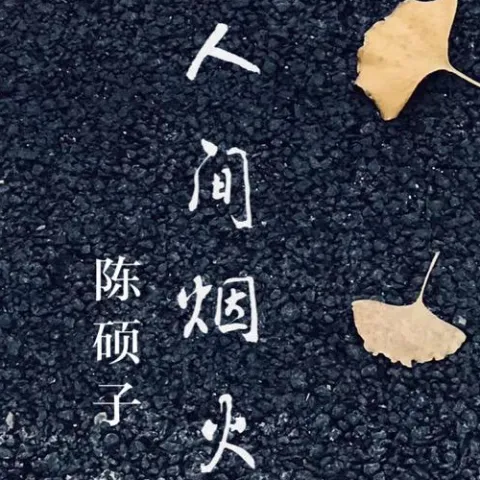 人间烟火
陈硕子